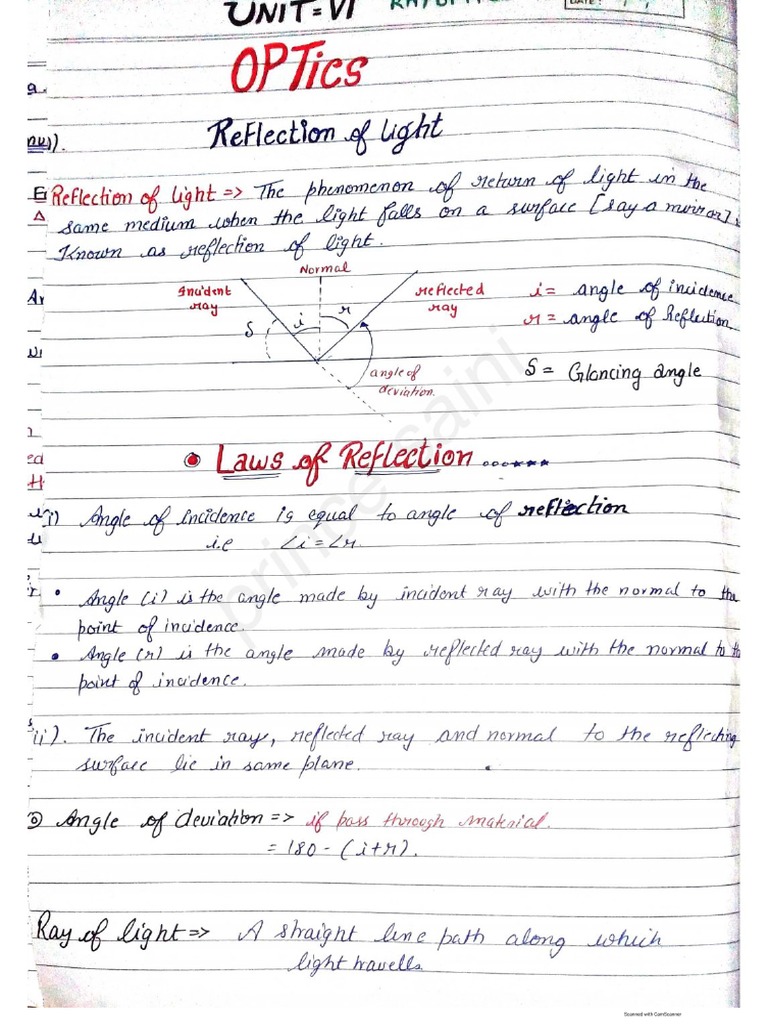 UNIT=VI
DATE:
OPTics
Reflection of light
Reflection of light => The phenomenon of return of light in the
same medium when the light falls on a surface [say a mirror] is
Known as reflection of light.
Normal
Incident
ray
reflected
ray
i = angle of incidence
r = angle of Reflection
i
r
S
angle of
deviation.
S = Glancing angle
Laws of Reflection ......
i) Angle of incidence is equal to angle of reflection
i.e ∠i = ∠r.
• Angle (i) is the angle made by incident ray with the normal to the
point of incidence.
• Angle (r) is the angle made by reflected ray with the normal to th
point of incidence.
ii). The incident ray, reflected ray and normal to the reflecting
surface lie in same plane.
Angle of deviation => if pass through material.
= 180 - (i+r).
Ray of light => A straight line path along which
light travells.
prince saini
Scanned with CamScanner